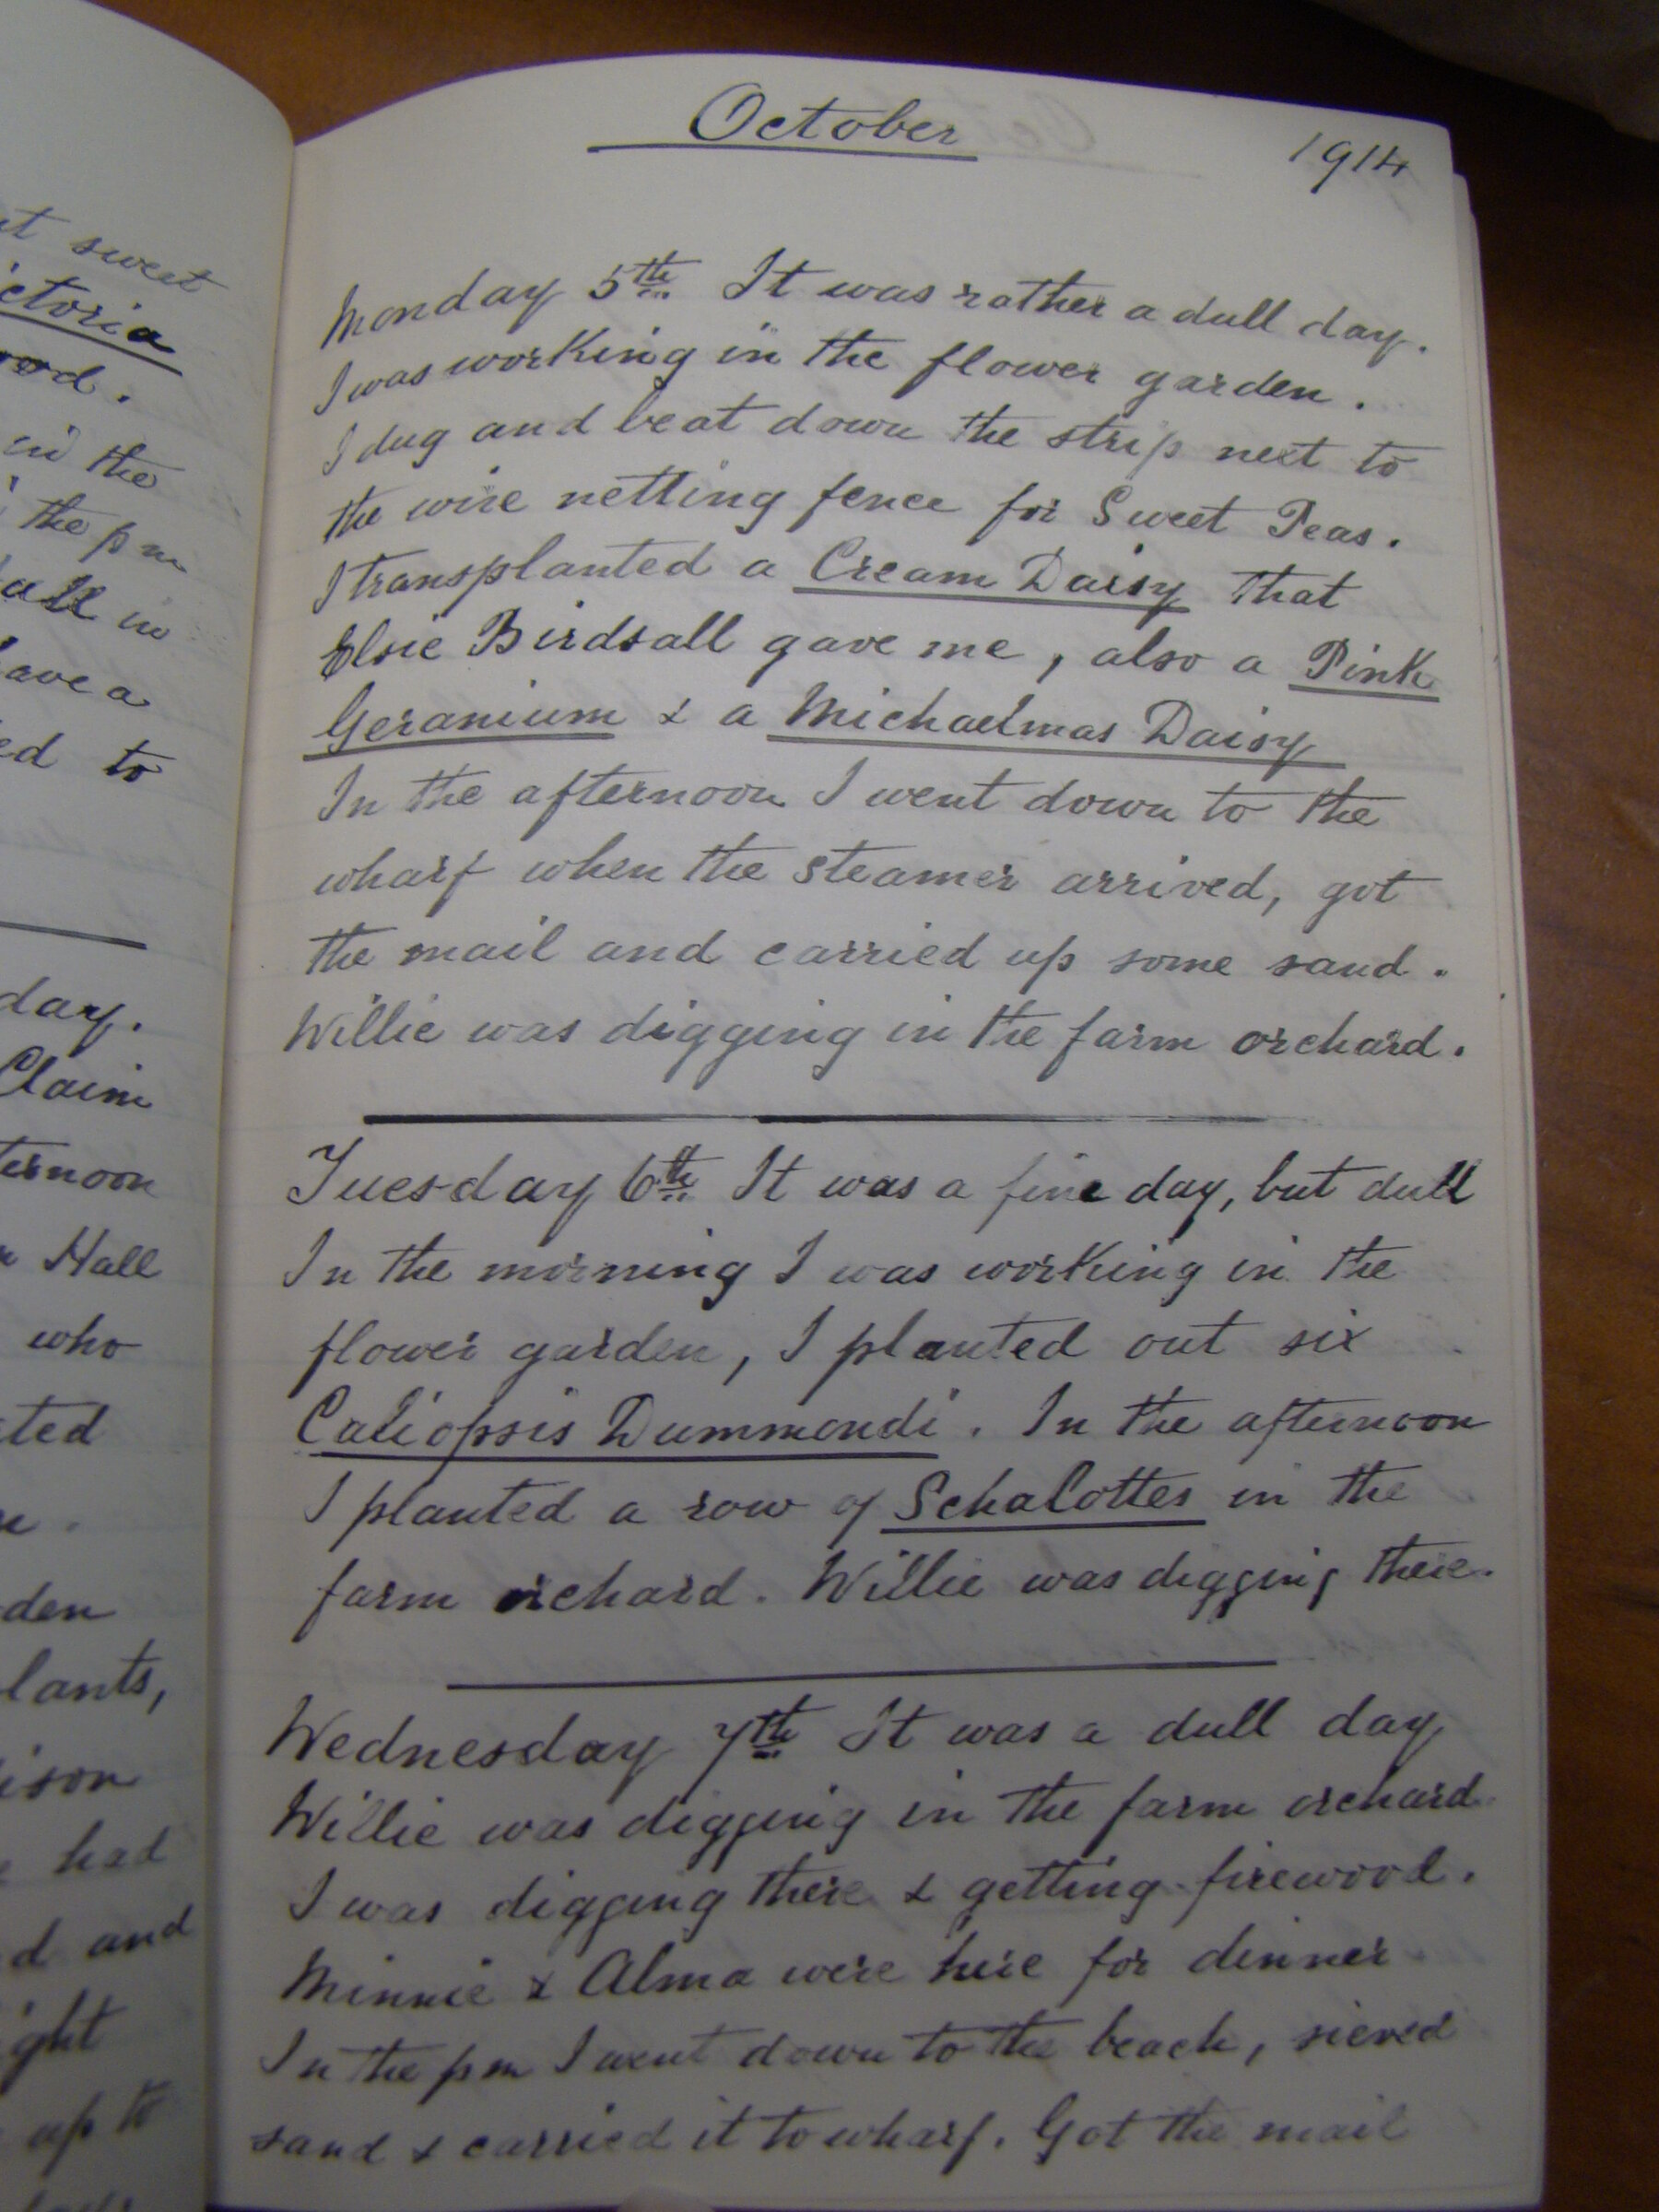 t sweet
ctoria
in the
the pm
all in
ave a
ed to
day.
Claim
ternoon
Hall
who
ted
den
lants,
ison
had
d and
ght
up to
October
1914
Monday 5th It was rather a dull day.
I was working in the flower garden.
I dug and beat down the strip next to
the wire netting fence for Sweet Peas.
I transplanted a Cream Daisy that
Elsie Birdsall gave me, also a Pink
Geranium & a Michaelmas Daisy
In the afternoon I went down to the
wharf when the steamer arrived, got
the mail and carried up some sand.
Willie was digging in the farm orchard.
Tuesday 6th It was a fine day, but dull
In the morning I was working in the
flower garden, I planted out six
Caliopsis Dummondi. In the afternoon
I planted a row of Schalottes in the
farm orchard. Willie was digging there.
Wednesday 7th It was a dull day
Willie was digging in the farm orchard
I was digging there & getting firewood.
Minnie & Alma were here for dinner
In the pm I went down to the beach, sieved
sand & carried it to wharf. Got the mail